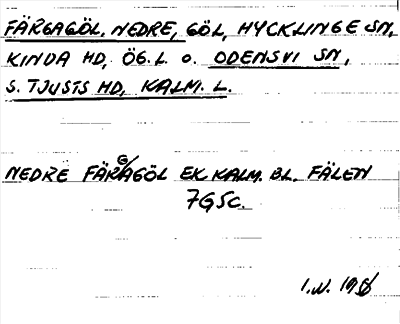 FÄRGAGÖL, NEDRE, GÖL, HYCKLINGE SN,
KINDA HD, ÖG. L. O. ODENSVI SN,
S. TJUSTS HD, KALM. L.
NEDRE FÄRGAGÖL EK KALM. BL. FÄLEN
7G5C.
I.N.